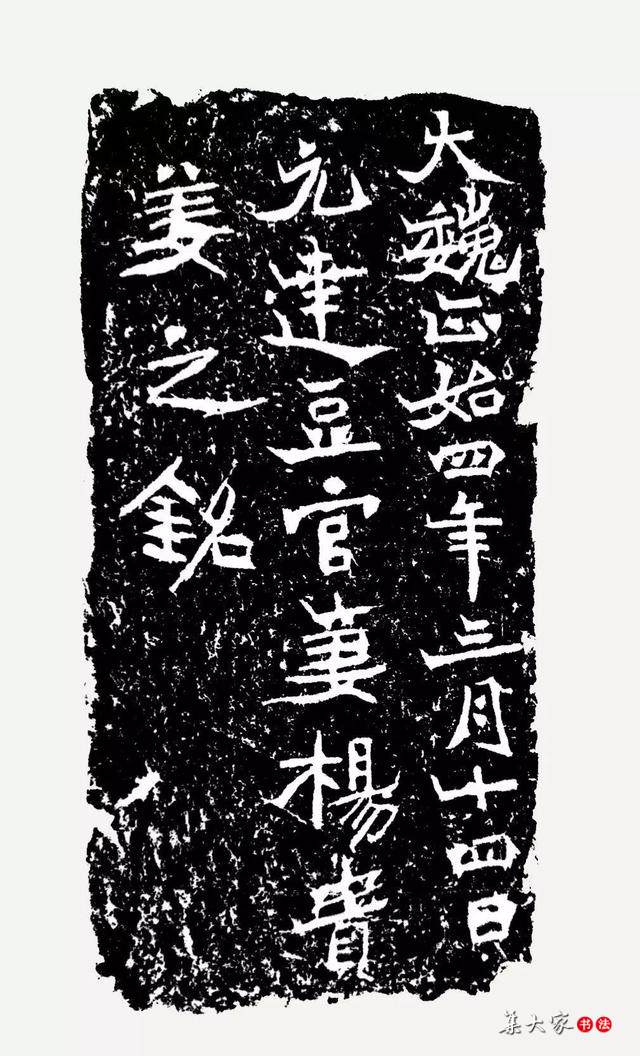 大魏正始四年三月十四日
元達豆官妻楊貴
姜之銘
集大家书法